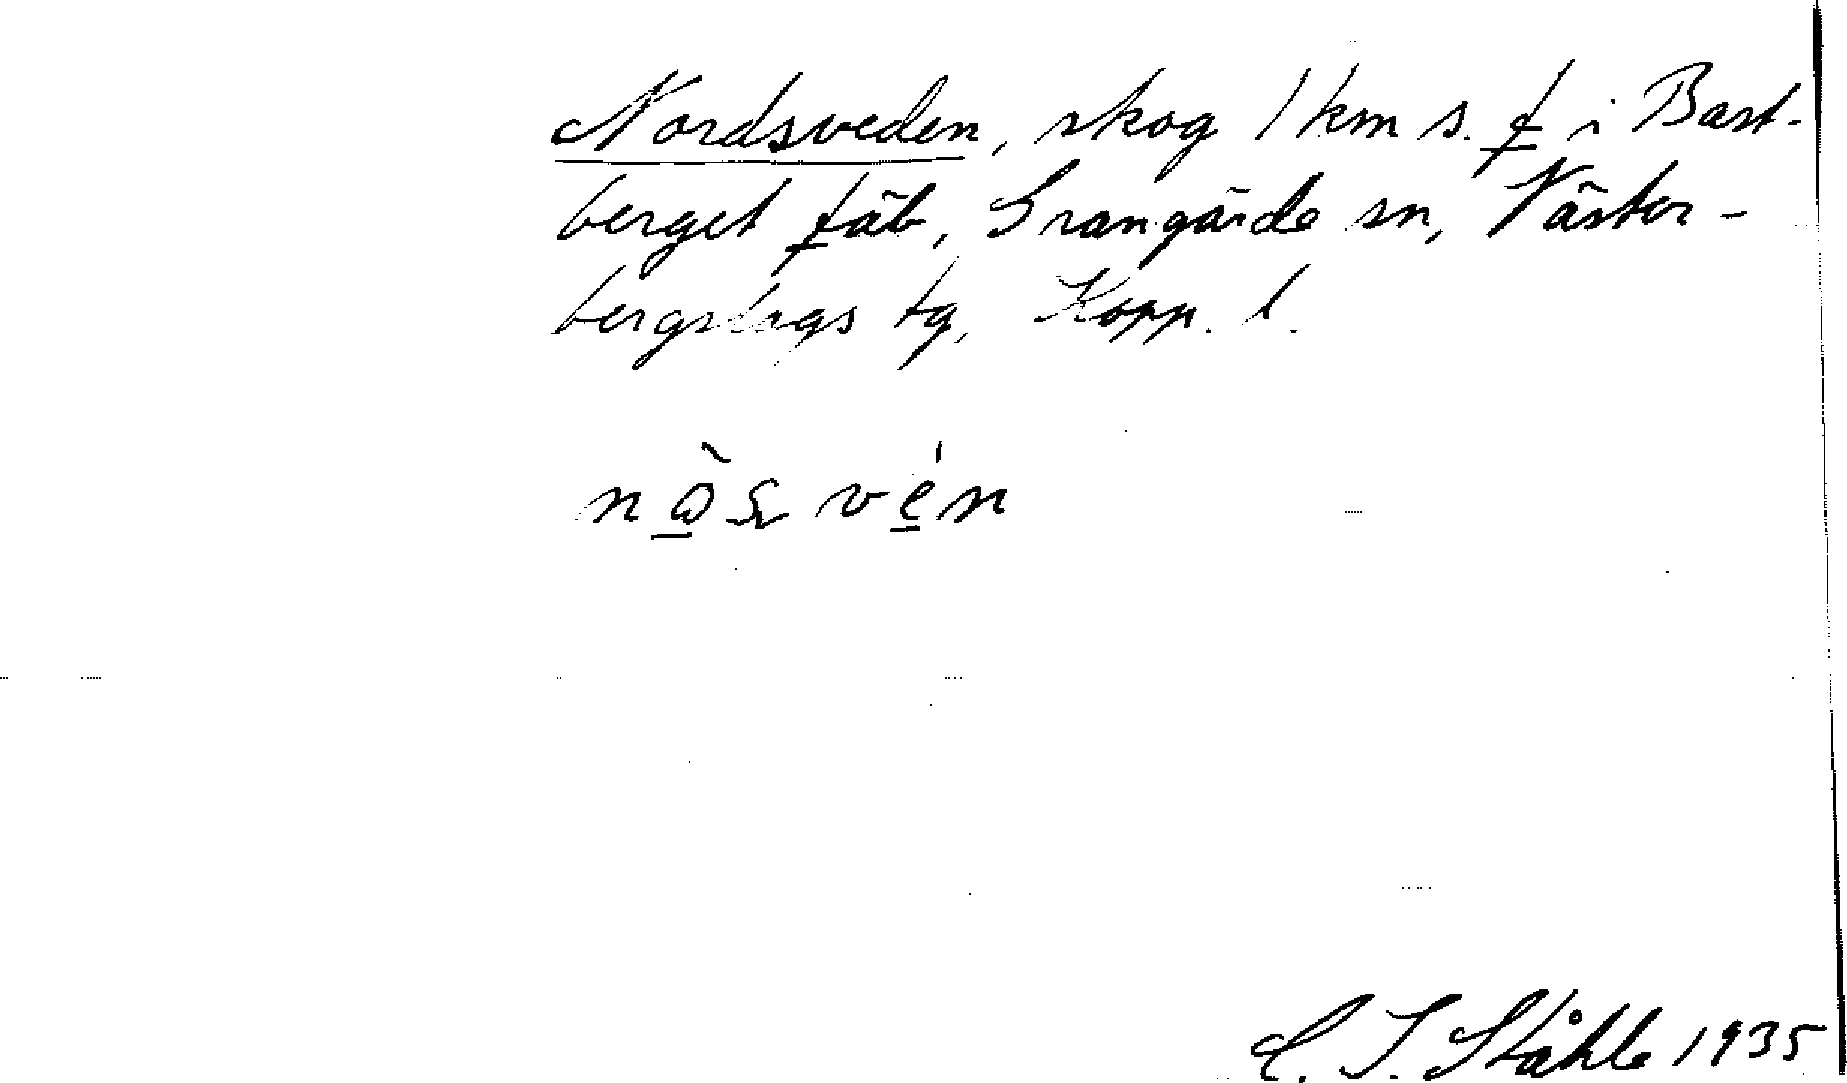 Nordsveden, skog 1 km s. f i Bast-
berget fäb, Grangärde sn, Väster-
bergslags tg, Kopp. l.
nò̠s vé̠n
C. I. Ståhle 1935